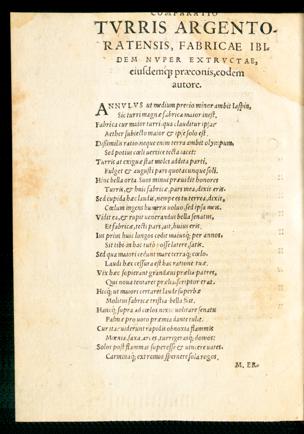 COMPARATIO
TVRRIS ARGENTO-
RATENSIS, FABRICAE IBI
DEM NVPER EXTRVCTAE,
eiusdemq́; præconis, eodem
autore.
ANNVLVS ut medium precio minor ambit Iaspin,
Sic turri magnæ fabrica maior inest,
Fabrica cur maior turri, qua clauditur ipsa?
Aether subiecto maior & ipse solo est.
Dissimilis ratio, neque enim terra ambit olympum,
Sed potius cœli uertice tecta iacet:
Turris at exiguæ stat moles addita parti,
Fulget & augusti pars quotacunque soli.
Hinc bella orta. Suos minus præuidit honores
Turris, & huic fabricæ, pars mea, dixit eris.
Sed cupida hæc laudis, nempe es tu terrea, dixit,
Cœlum ingens humeris uoluo, sed ipsa meis.
Vidit ea, & rupit uenerandus bella senatus,
Et fabricæ, tecti pars, ait, huius erit,
Ius prius huic longos cedit maiusq́; per annos.
Sit tibi in hac tuto posse latere, satis.
Sed qua maiori cedunt mare terraq́; cœlo.
Laudi hæc cessura est hac ratione tuæ.
Vix hæc sopierant grandæui prælia patres,
Qui noua tentaret præliæ scriptor erat.
Hicq́; ut maiori certaret laude superbæ
Molitus fabricæ tristia bella
Hancq́; supra ad cœlos nexit uolitare senatu
Palmæ pro uoto præmia dante tulit.
Cur ita? uiderunt rapidis obnoxia flammis
Mœnia, saxa, arces, turrigerasq́; domos:
Solos post flammas superesse & uincere uates.
Carminaq́; extremos spernere sola rogos.
M. ER-